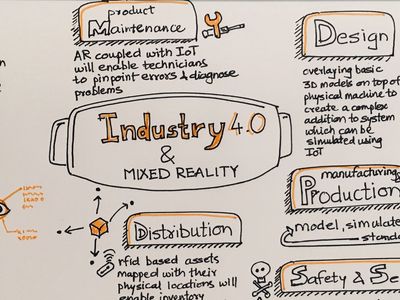 product
Maintenance
AR coupled with IoT
will enable technicians
to pinpoint errors & diagnose
problems
Design
overlaying basic
3D models on top of
physical machine to
create a complex
addition to system
which can be
simulated using
IoT
Industry 4.0
&
MIXED REALITY
manufacturing
Production
model, simulate
stand
Distribution
rfid based assets
mapped with their
physical locations will
enable inventory
Safety & Se